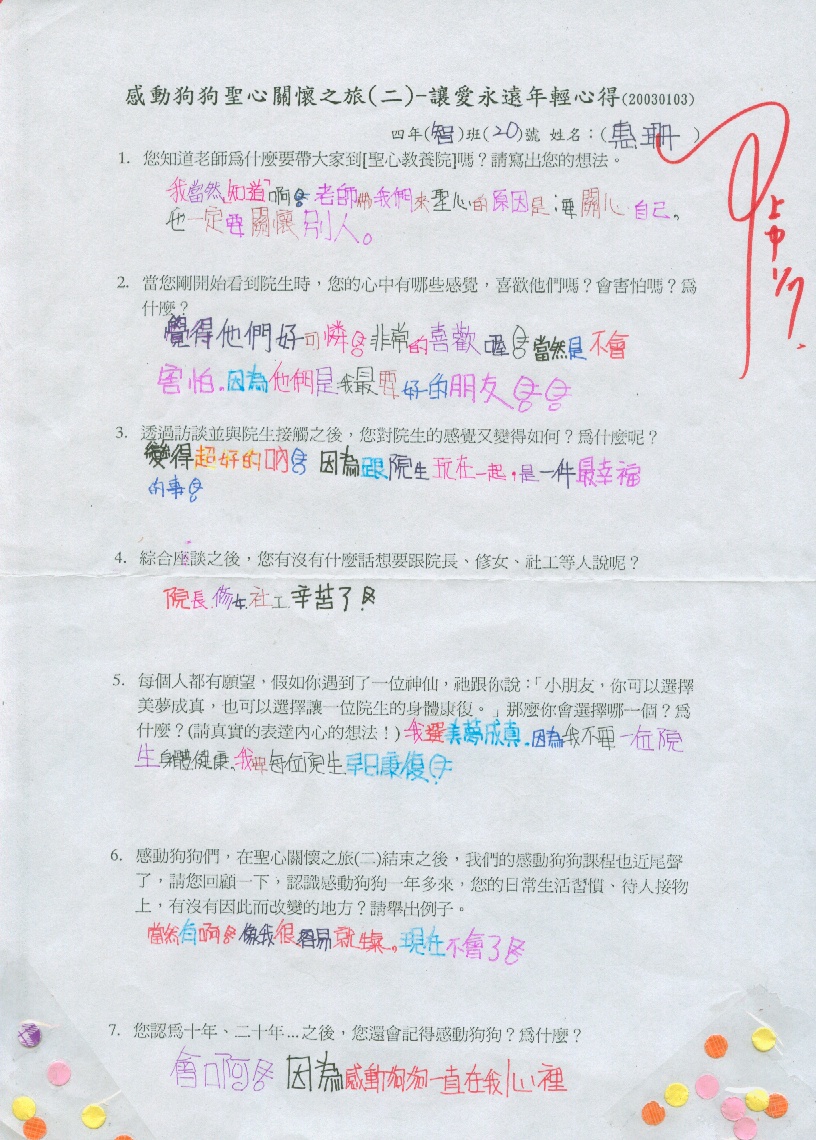 感動狗狗聖心關懷之旅(二)-讓愛永遠年輕心得(20030103)
四年(智)班(20)號 姓名：(惠珊 )
1. 您知道老師為什麼要帶大家到[聖心教養院]嗎？請寫出您的想法。
我當然知道啊 老師 我們來聖心的原因是：要關心 自己，
也一定要關懷別人。
2. 當您剛開始看到院生時，您的心中有哪些感覺，喜歡他們嗎？會害怕嗎？為
什麼？
覺得他們好可憐 非常的喜歡喔 當然是不會
害怕.因為他們是我最要好的朋友
3. 透過訪談並與院生接觸之後，您對院生的感覺又變得如何？為什麼呢？
變得超好的吶 因為跟院生玩在一起，是一件最幸福
的事
4. 綜合座談之後，您有沒有什麼話想要跟院長、修女、社工等人說呢？
院長.修女.社工.辛苦了
5. 每個人都有願望，假如你遇到了一位神仙，祂跟你說：「小朋友，你可以選擇
美夢成真，也可以選擇讓一位院生的身體康復。」那麼你會選擇哪一個？為
什麼？(請真實的表達內心的想法！) 我選美夢成真.因為我不要一位院
生身體健康、我要每位院生早日康復
6. 感動狗狗們，在聖心關懷之旅(二)結束之後，我們的感動狗狗課程也近尾聲
了，請您回顧一下，認識感動狗狗一年多來，您的日常生活習慣、待人接物
上，有沒有因此而改變的地方？請舉出例子。
當然有啊 像我很容易就生氣，現在不會了
7. 您認為十年、二十年…之後，您還會記得感動狗狗？為什麼？
會啊 因為感動狗狗一直在我心裡